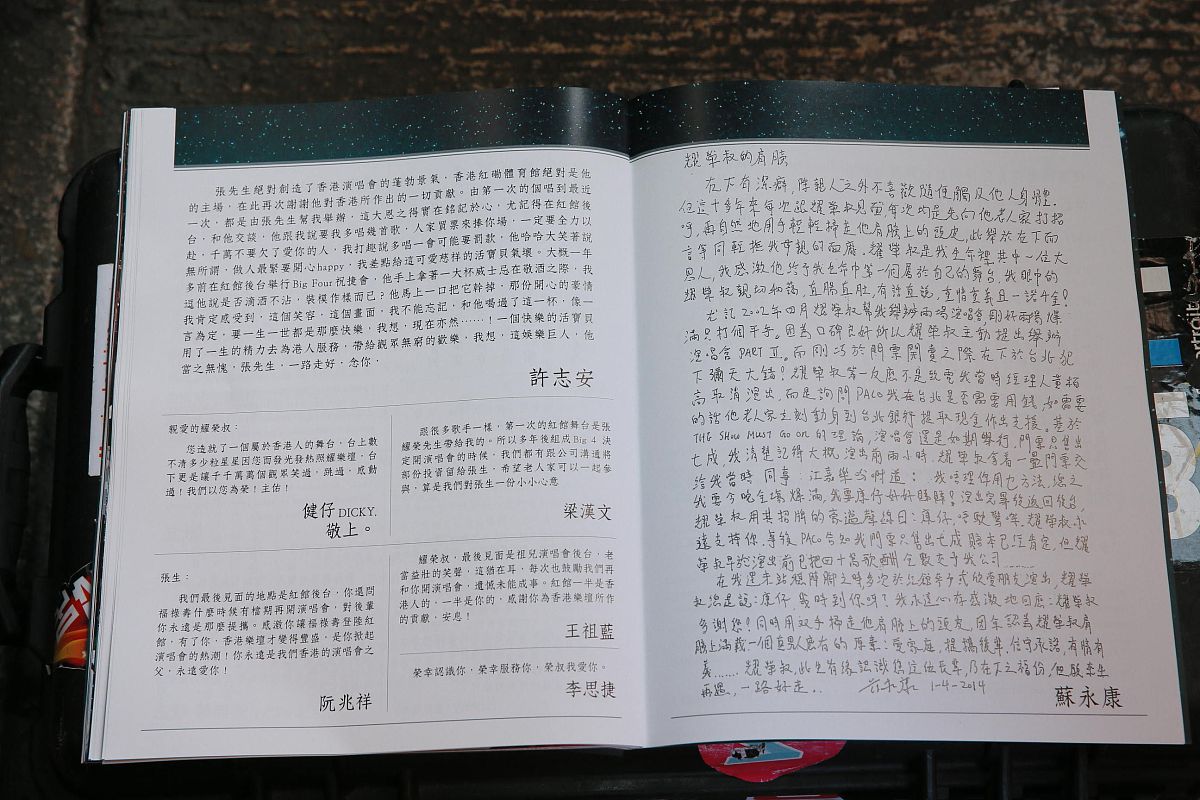 張先生絕對創造了香港演唱會的蓬勃景氣,香港紅磡體育館絕對是他
的主場,在此再次謝謝他對香港所作出的一切貢獻。由第一次的個唱到最近
一次,都是由張先生幫我舉辦,這大恩之得實在銘記於心,尤記得在紅館後
台,和他交談,他跟我說要我多唱幾首歌,人家買票來捧你場,一定要全力以
赴,千萬不要欠了愛你的人,我打趣說多唱一會可能要罰款,他哈哈大笑著說
無所謂,做人最緊要開心happy,我差點給這可愛慈祥的活寶貝氣壞。大概一年
多前在紅館後台舉行Big Four祝捷會,他手上拿著一大杯威士忌在敬酒之際,我
逗他說是否滴酒不沾,裝模作樣而已?他馬上一口把它幹掉,那份開心的豪情
我肯定感受到,這個笑容,這個畫面,我不能忘記,和他喝過了這一杯,像一
言為定,要一生一世都是那麼快樂,我想,現在亦然……!一個快樂的活寶貝
用了一生的精力去為港人服務,帶給觀眾無窮的歡樂,我想,這娛樂巨人,他
當之無愧,張先生,一路走好,念你。
許志安
親愛的耀榮叔:
您造就了一個屬於香港人的舞台,台上數
不清多少粒星星因您而發光發熱照耀樂壇,台
下更是讓千千萬萬個觀眾笑過,跳過,感動
過!我們以您為榮!主佑!
健仔 DICKY.
敬上。
跟很多歌手一樣,第一次的紅館舞台是張
耀榮先生帶給我的。所以多年後組成Big 4 決
定開演唱會的時候,我們都有跟公司溝通將
部份投資留給張生,希望老人家可以一起參
與,算是我們對張生一份小小心意
梁漢文
張生:
我們最後見面的地點是紅館後台,你還問
福祿壽什麼時候有檔期再開演唱會,對後輩
你永遠是那麼提攜。感激你讓福祿壽登陸紅
館,有了你,香港樂壇才變得豐盛,是你掀起
演唱會的熱潮!你永遠是我們香港的演唱會之
父,永遠愛你!
阮兆祥
耀榮叔,最後見面是祖兒演唱會後台,老
當益壯的笑聲,這猶在耳,每次也鼓勵我們再
和你開演唱會,遺憾未能成事。紅館一半是香
港人的,一半是你的,感謝你為香港樂壇所作
的貢獻,安息!
王祖藍
榮幸認識你,榮幸服務你,榮叔我愛你。
李思捷
耀榮叔的肩膀
在下有潔癖,除親人之外不喜歡隨便觸及他人身體,
但這十多年來每次跟耀榮叔見面,每次均是先向他老人家打招
呼,再自然地用手輕輕掃走他肩膀上的頭皮,此舉於在下而
言等同輕撫我母親的面龐。耀榮叔是我生命裡其中一位大
恩人,我感激他給予我生命中第一個屬於自己的舞台,我眼中的
耀榮叔親切和藹,直腸直肚,有話直說,重情重義且一諾千金!
尤記2002年四月耀榮叔幫我舉辦兩場演唱會剛好兩場爆
滿只打個平手。因為口碑良好所以耀榮叔主動提出舉辦
演唱會 PART II。而剛巧於門票開賣之際在下於台北犯
下彌天大錯!耀榮叔第一反應不是致電我當時經理人黃柏
高取消演出,而是詢問PACO我在台北是否需要用錢,如需要
的話他老人家立刻動身到台北銀行提取現金作出支援。基於
THE SHOW MUST GO ON 的理論,演唱會還是如期舉行,門票只售出
七成,我清楚記得大概演出前兩小時,耀榮叔拿着一疊門票交
給我當時同事:江嘉樂吩咐道:我唔理你用乜方法,總之
我要今晚全場爆滿,我要康仔好好睇睇!演出完畢後返回後台,
耀榮叔用其招牌的豪邁聲線曰:康仔,唔駛驚呀,耀榮叔永
遠支持你。事後 PACO 告知我門票只售出七成賠本已經肯定,但耀
榮叔早於演出前已把四十萬歌酬全數交予我公司……
叔總是說:康仔,幾時到你呀?我永遠心存感激地回應:耀榮叔
多謝您!同時用双手掃走他肩膀上的頭皮,因我認為耀榮叔肩
膀上滿載一個真男人應有的原素:愛家庭,提攜後輩,信守承諾,有情有
義…… 耀榮叔,此生有緣認識您這位長輩,乃在下之福份,但願來生
再遇,一路好走.. 1-4-2014
蘇永康